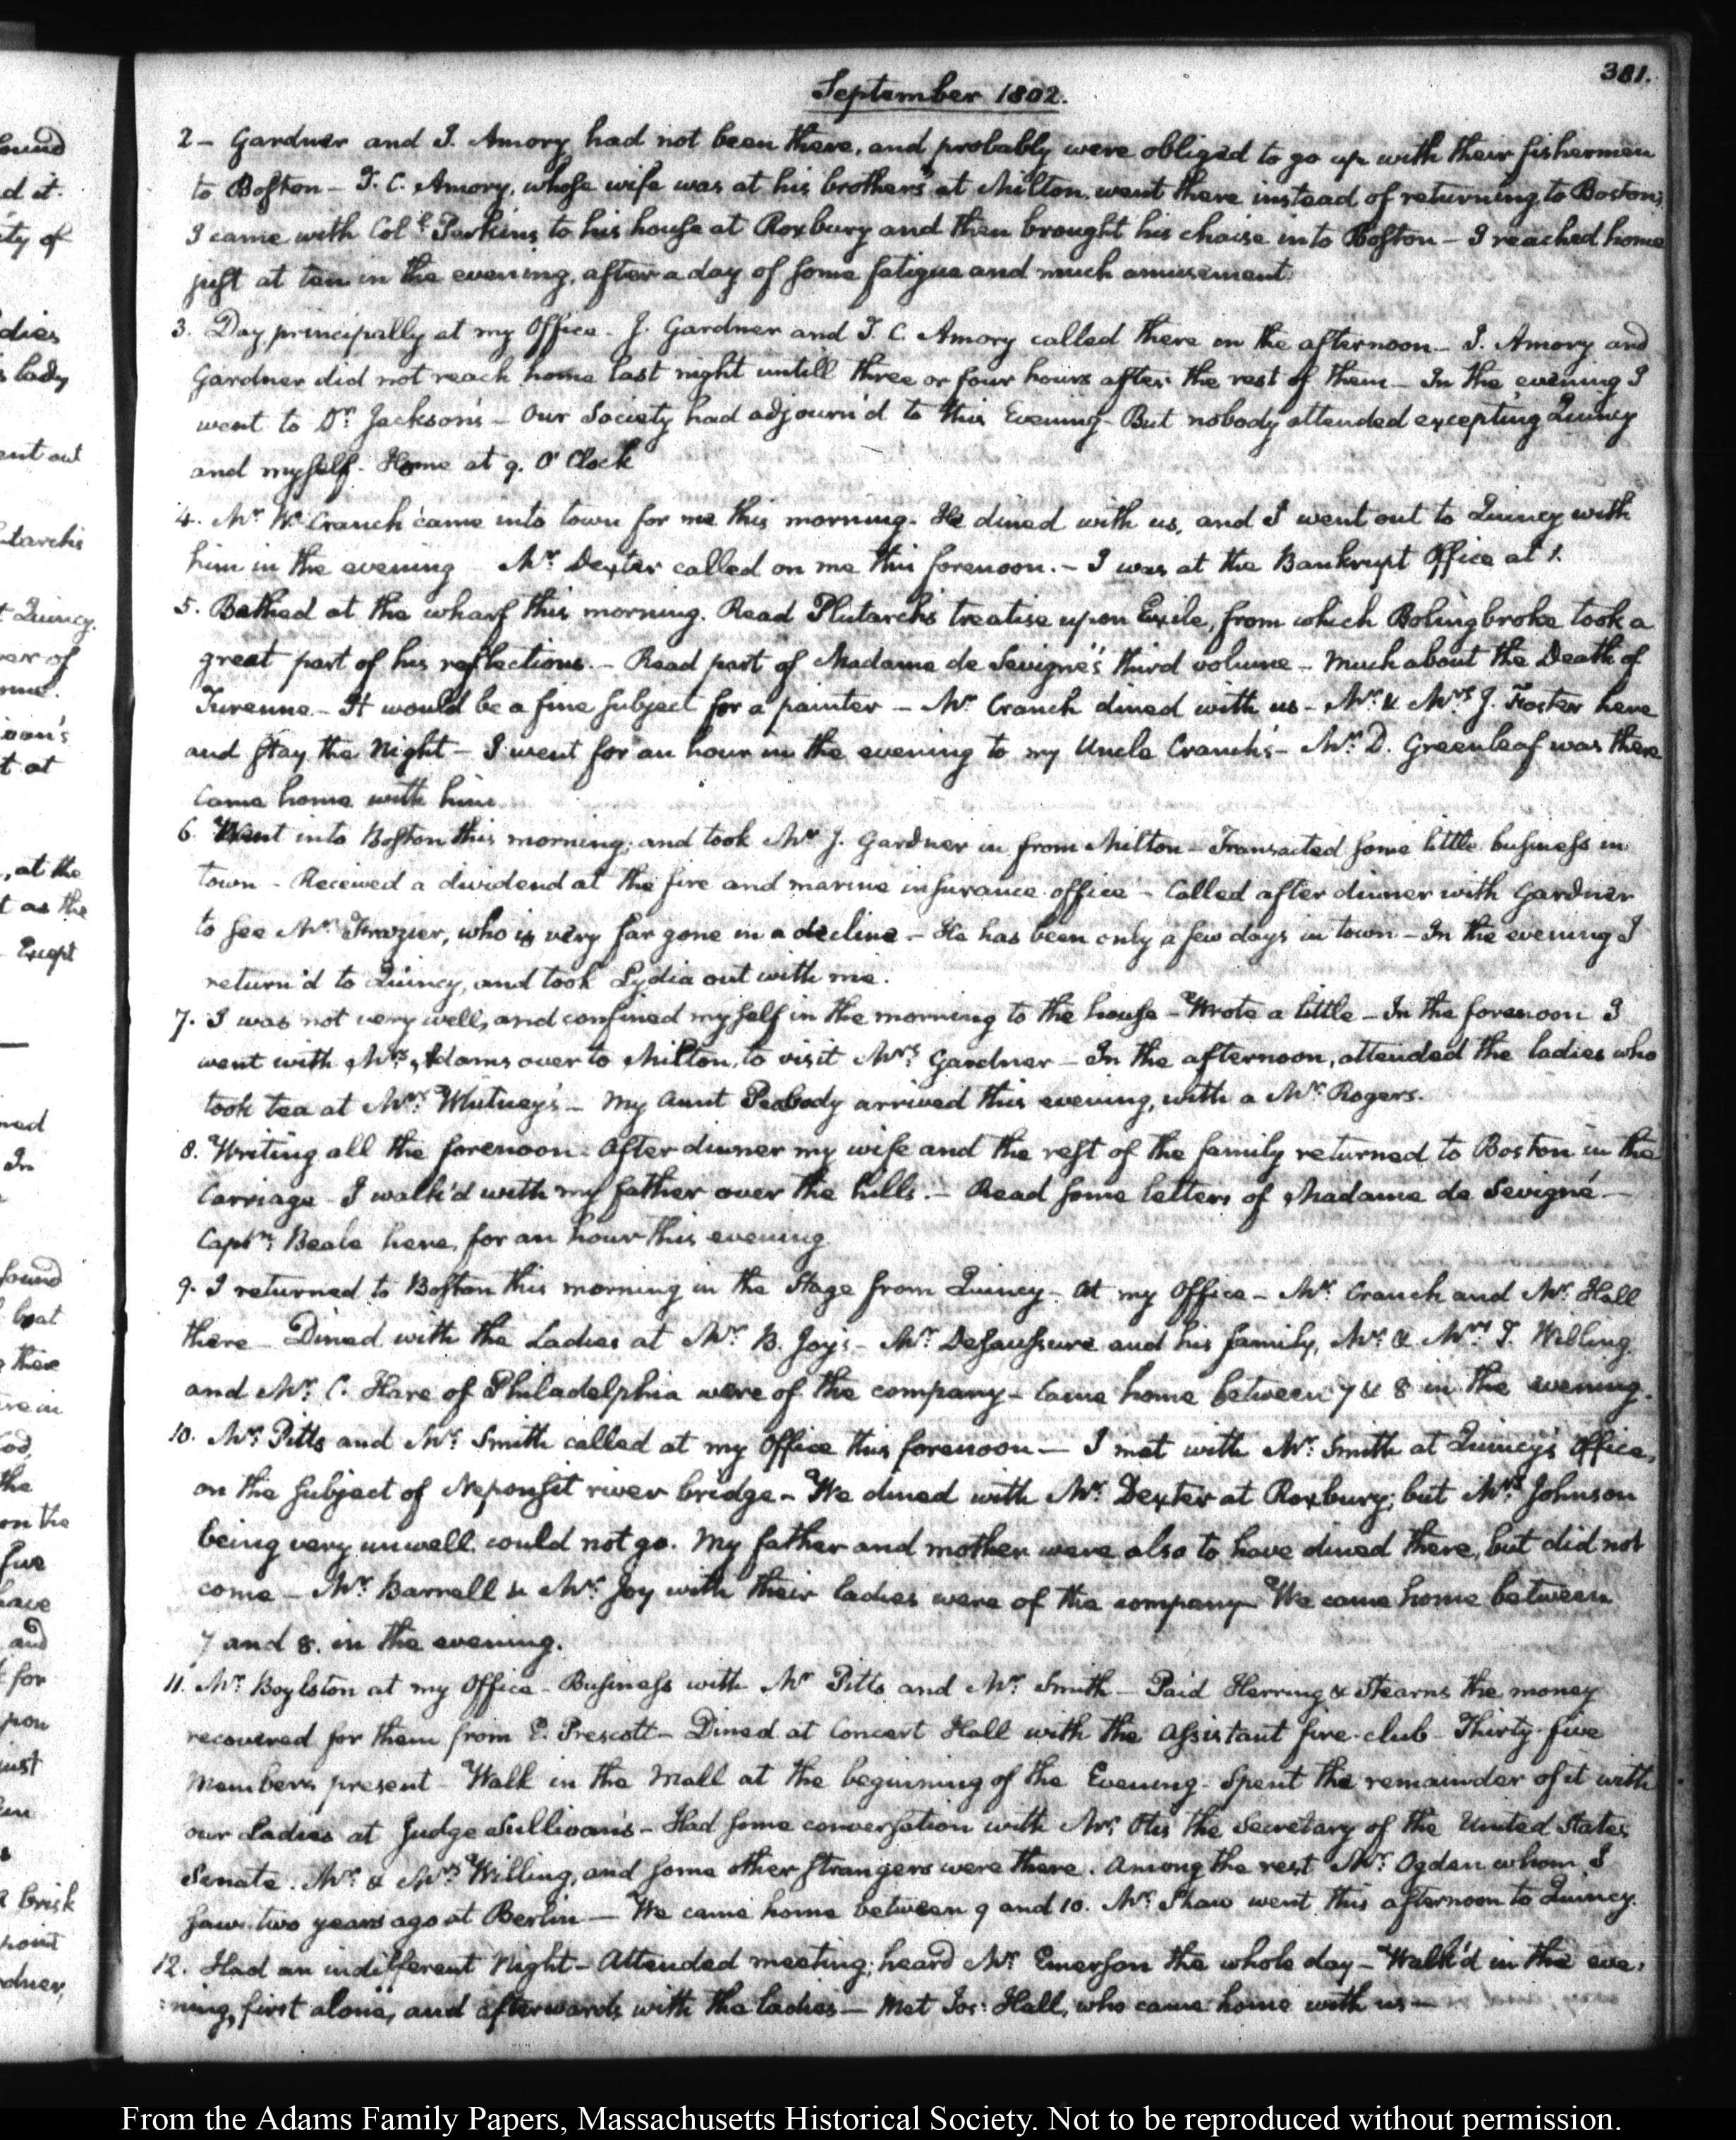 381.
September 1802.
2 - Gardner and J. Amory had not been there, and probably were obliged to go up with their fishermen
to Boston - T. C. Amory, whose wife was at his brother's at Milton, went there instead of returning to Boston;
I came with Coll. Perkins to his house at Roxbury and then brought his chaise into Boston - I reached home
just at ten in the evening, after a day of some fatigue and much amusement.
3. Day principally at my Office - J. Gardner and T. C. Amory called there in the afternoon - J. Amory and
Gardner did not reach home last night untill three or four hours after the rest of them - In the evening I
went to Dr. Jackson's - Our Society had adjourn'd to this Evening - But nobody attended excepting Quincy
and myself - Home at 9. O'Clock
4. Mr. W. Cranch came into town for me this morning. He dined with us, and I went out to Quincy with
him in the evening Mr. Dexter called on me this forenoon. - I was at the Bankrupt Office at 1.
5. Bathed at the wharf this morning. Read Plutarch's treatise upon Exile, from which Bolingbroke took a
great part of his reflections. - Read part of Madame de Sevigné's third volume - Much about the Death of
Turenne - It would be a fine subject for a painter - Mr. Cranch dined with us - Mr. & Mrs. J. Foster here
and stay the Night - I went for an hour in the evening to my Uncle Cranch's - Mr. D. Greenleaf was there
Came home with him
6. Went into Boston this morning, and took Mr. J. Gardner in from Milton - Transacted some little business in
town - Received a dividend at the fire and marine insurance office - Called after dinner with Gardner
to see Mr. Frazier, who is very far gone in a decline - He has been only a few days in town - In the evening I
return'd to Quincy, and took Lydia out with me.
7. I was not very well, and confined myself in the morning to the house - Wrote a little - In the forenoon I
went with Mrs. Adams over to Milton, to visit Mrs. Gardner - In the afternoon, attended the ladies who
took tea at Mr. Whitney's - My aunt Peabody arrived this evening, with a Mr. Rogers.
8. Writing all the forenoon. After dinner my wife and the rest of the family returned to Boston in the
Carriage - I walk'd with my father over the hills. - Read some letters of Madame de Sevigné -
Captn. Beale here, for an hour this evening
9. I returned to Boston this morning in the Stage from Quincy - At my Office - Mr. Cranch and Mr. Hall
there - Dined with the Ladies at Mr. B. Joy's - Mr. Desaussure and his family, Mr. & Mrs. T. Willing
and Mr. C. Hare of Philadelphia were of the company - Came home between 7 & 8 in the evening.
10. Mr. Pitts and Mr. Smith called at my Office this forenoon - I met with Mr. Smith at Quincy's Office,
on the subject of Neponsit river bridge - We dined with Mr. Dexter at Roxbury; but Mrs. Johnson
being very unwell could not go. My father and mother were also to have dined there, but did not
come - Mr. Barrell & Mr. Joy with their ladies were of the company We came home between
7 and 8. in the evening.
11. Mr. Boylston at my Office - Business with Mr. Pitts and Mr. Smith - Paid Herring & Stearns the money
recovered for them from E. Prescott - Dined at Concert Hall with the Assistant fire-club - Thirty-five
Members present - Walk in the Mall at the beginning of the Evening - Spent the remainder of it with
our Ladies at Judge Sullivan's - Had some conversation with Mr. Otis the Secretary of the United States
Senate. Mr. & Mrs. Willing, and some other strangers were there. Among the rest Mr. Ogden whom I
saw two years ago at Berlin - We came home between 9 and 10. Mr. Shaw went this afternoon to Quincy.
12. Had an indifferent Night - Attended meeting; heard Mr. Emerson the whole day - Walk'd in the eve-
:ning, first alone, and afterwards with the ladies - Met Jos: Hall, who came home with us -
From the Adams Family Papers, Massachusetts Historical Society. Not to be reproduced without permission.